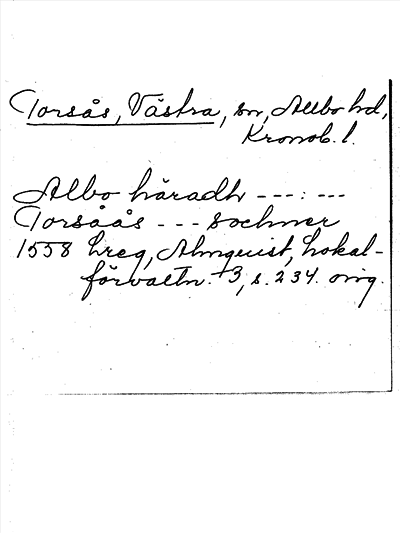 Torsås, Västra, sn, Allbo hd,
Kronob. l.
Albo häradh ---:---
Torsåås --- sochner
1558 hreg, Almquist, Lokal-
förvaltn. 3, s. 234. orig.